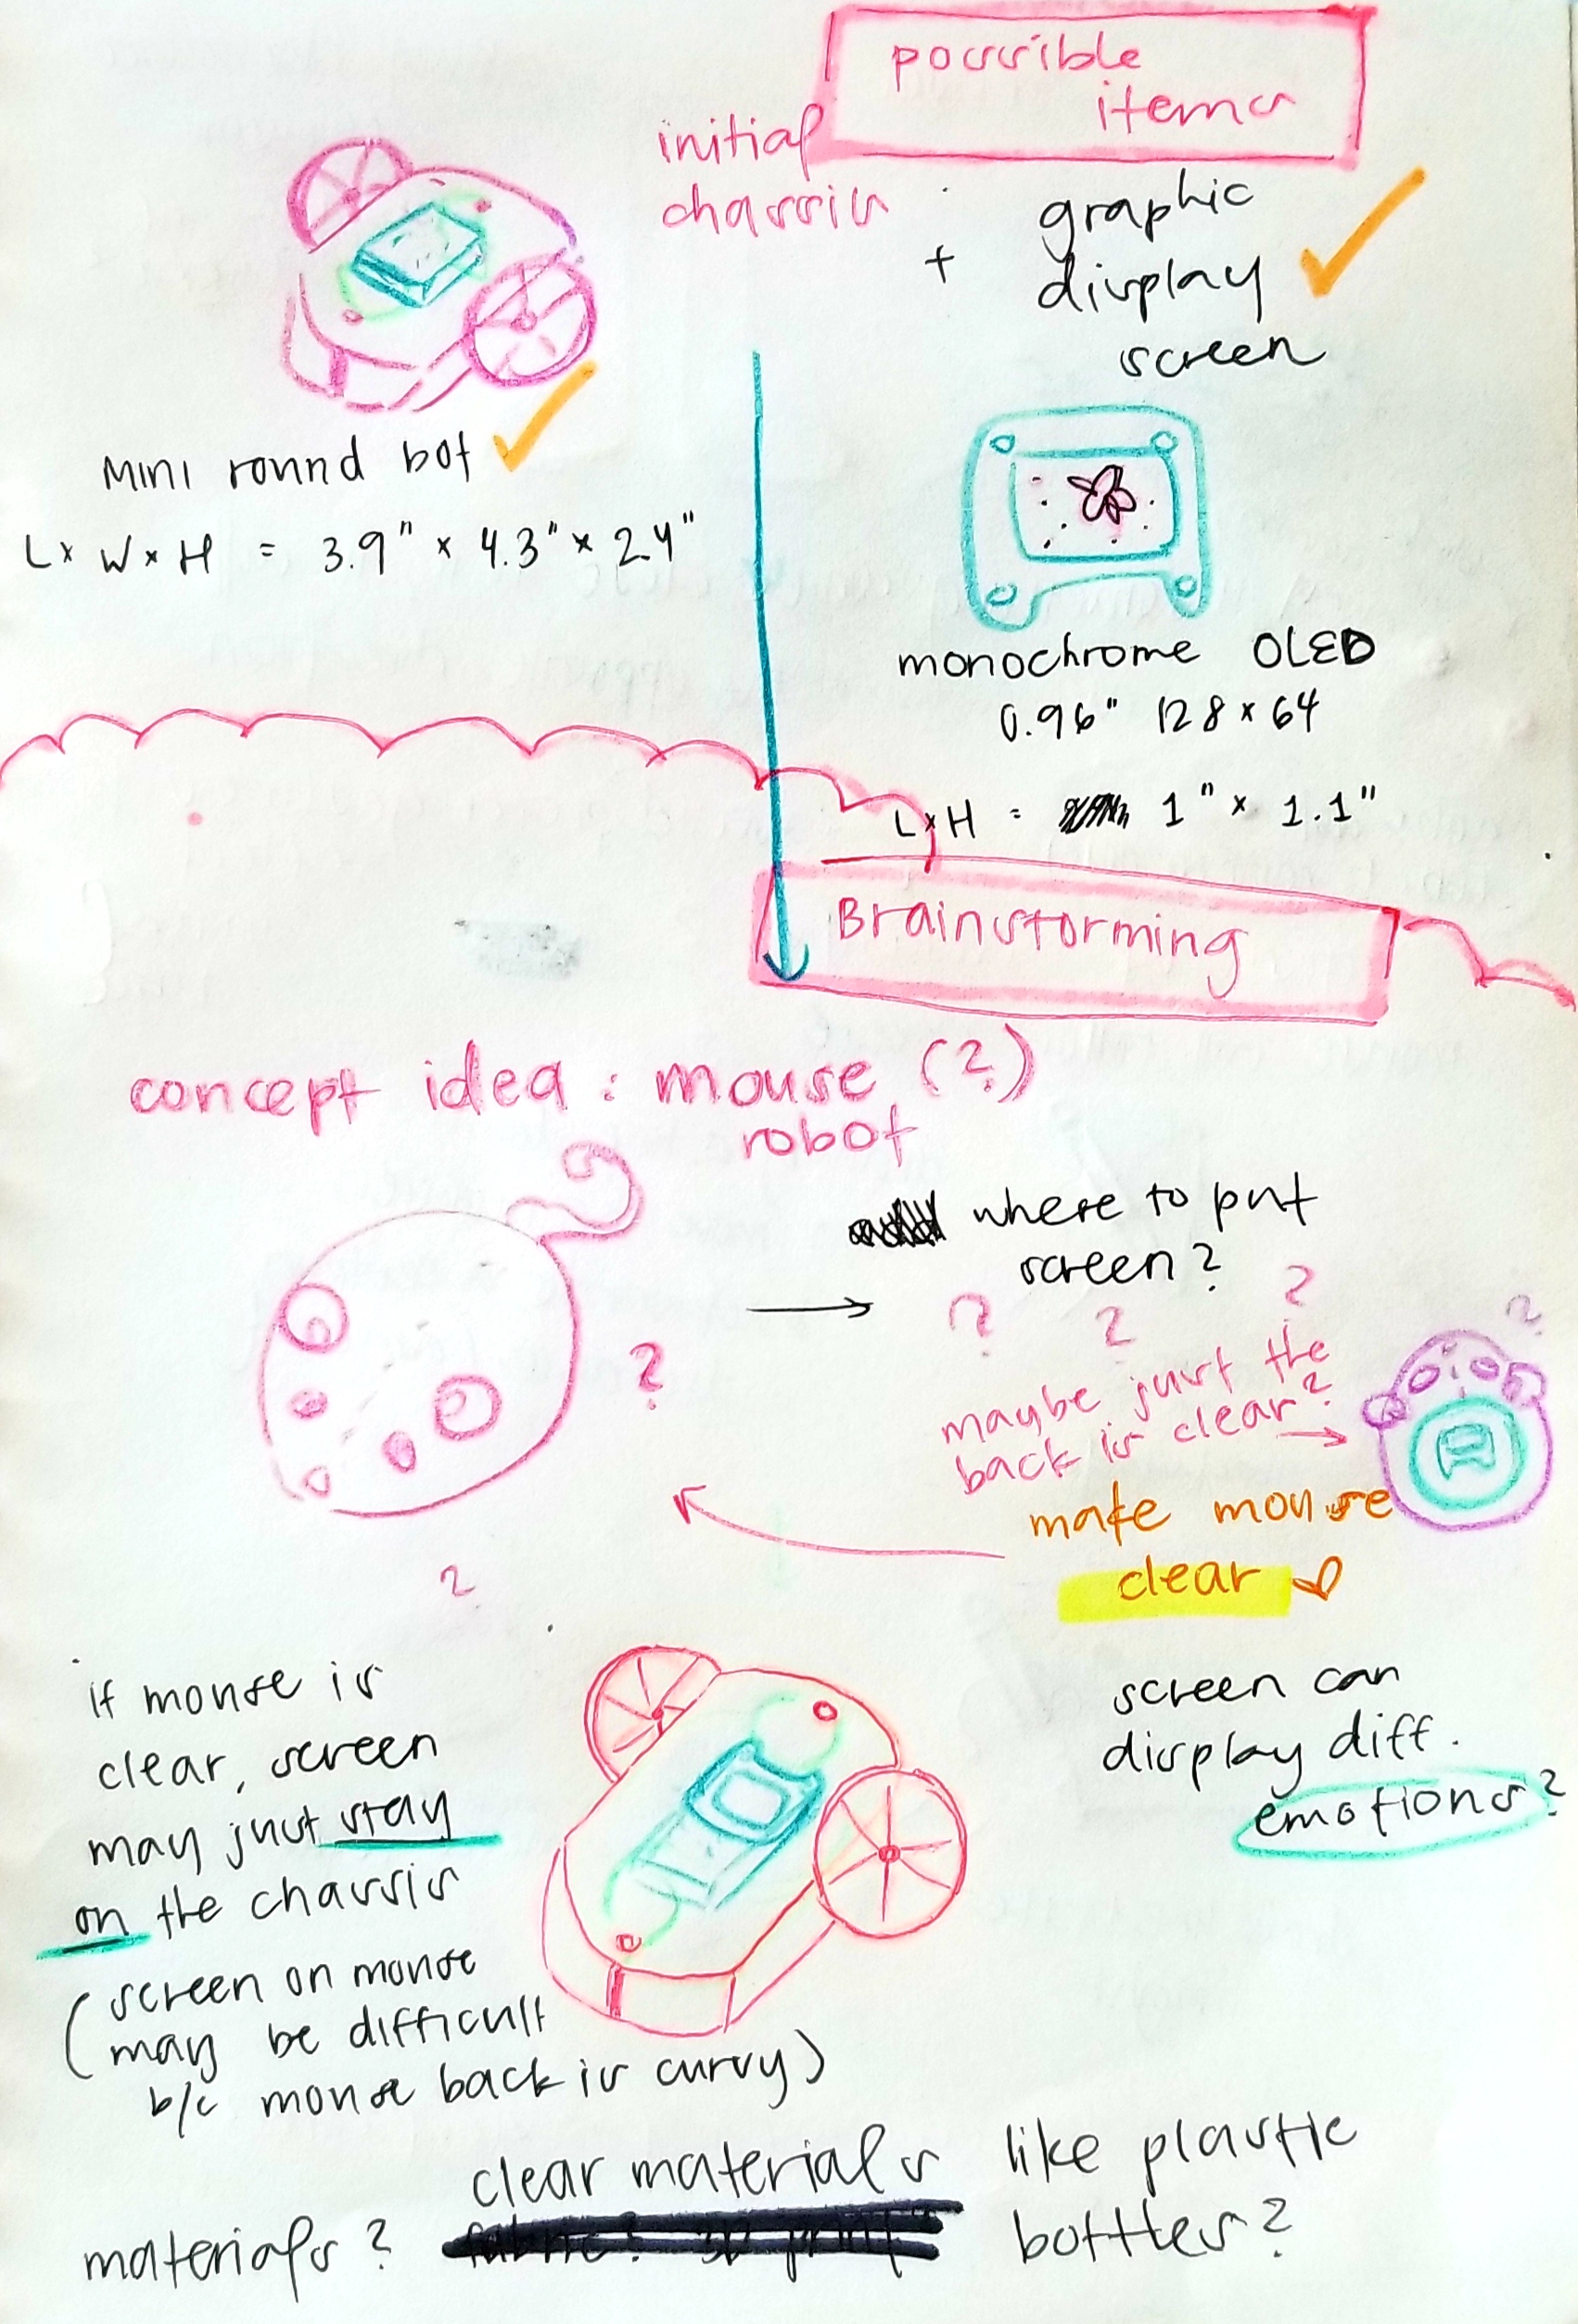 possible
items
initial
chassis
+
graphic
display
screen
mini round bot
L x W x H = 3.9" x 4.3" x 2.4"
monochrome OLED
0.96" 128 x 64
L x H = 1" x 1.1"
Brainstorming
concept idea : mouse (?)
robot
where to put
screen?
? ? ?
?
?
maybe just the
back is clear?
?
make mouse
clear
?
if mouse is
clear, screen
may just stay
on the chassis
(screen on mouse
may be difficult
b/c mouse back is curvy)
screen can
display diff.
emotions?
clear materials like plastic
materials? bottles?